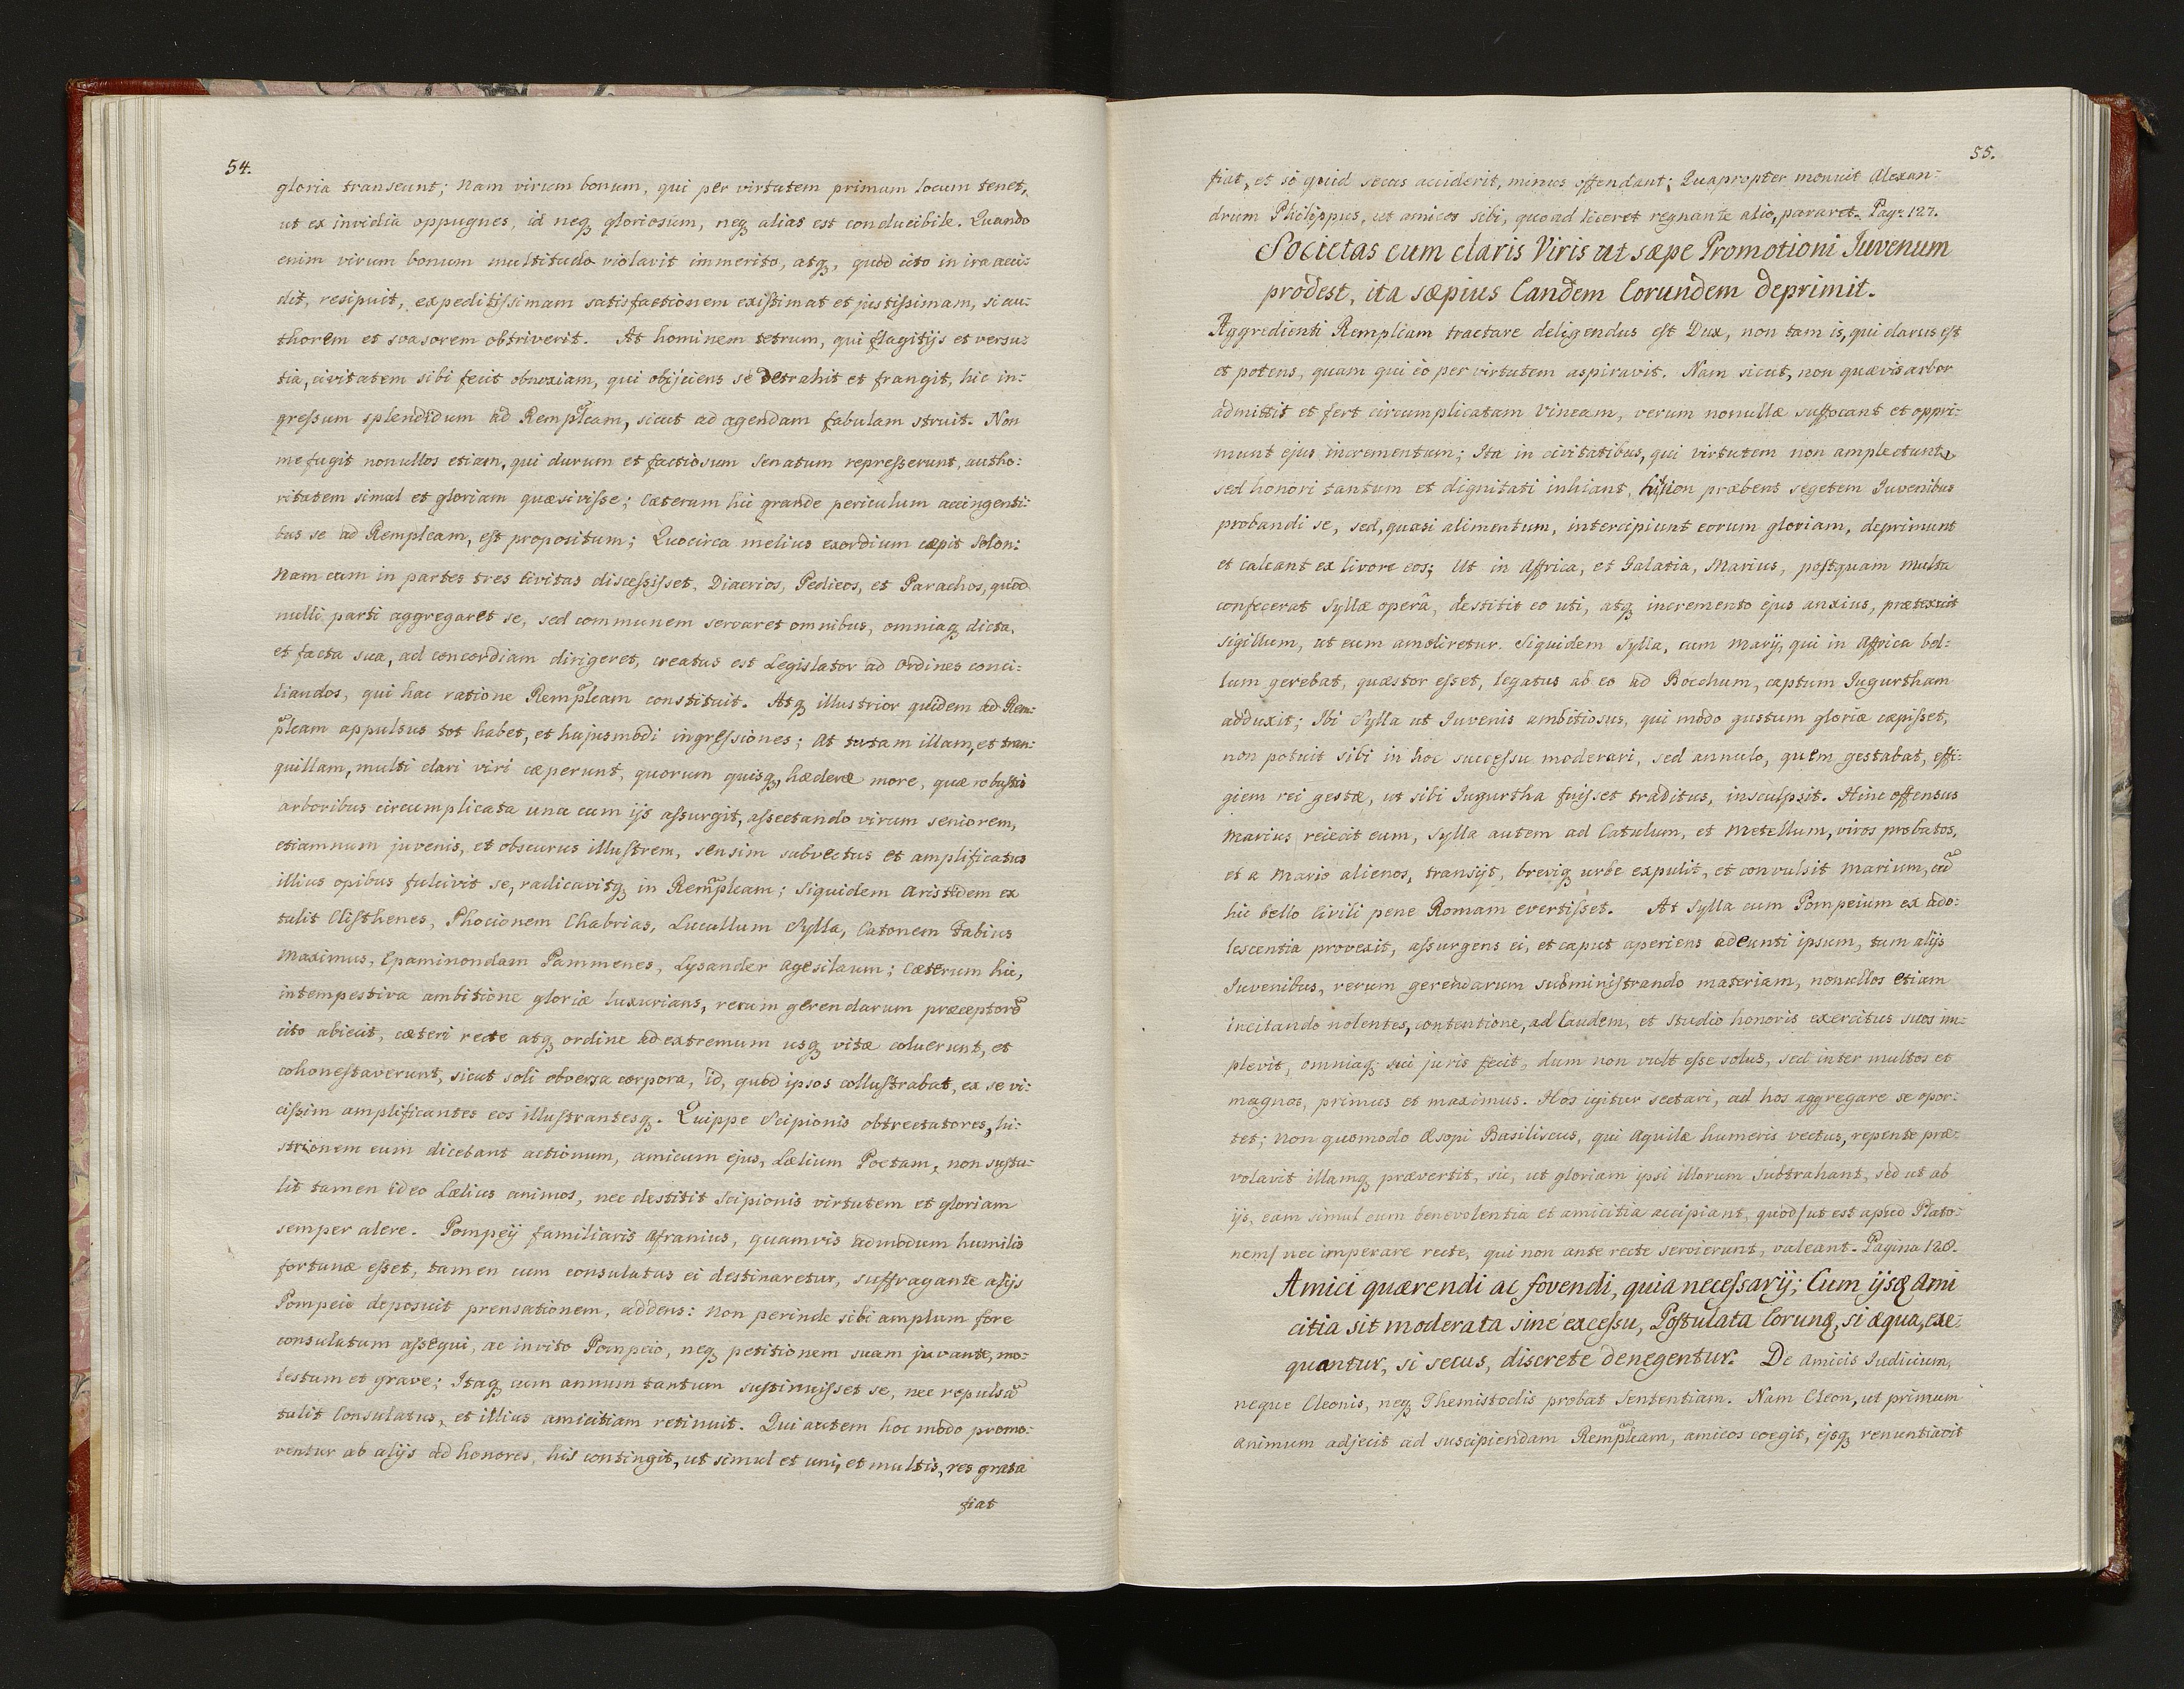 54.
gloria transeunt; Nam virum bonum, qui per virtutem primum locum tenet,
ut ex invidia oppugnes, id neq, gloriosum, neq, alias est conducibile. Quando
enim virum bonum multitudo violavit immerito, atq, quod cito in ira acci:
dit, resipuit, expeditissimam satisfactionem existimat et justissimam, si au:
thorem et svasorem obtriverit. At hominem tetrum, qui flagitijs et versu:
tia, civitatem sibi fecit obnoxiam, qui obijciens se detrahit et frangit, hic in:
gressum splendidum ad Rempleam, sicut ad agendam fabulam struit. Non
me fugit nonullos etiam, qui durum et factiosum Senatum represserunt, autho:
ritatem simul et gloriam quæsivisse; Cæterum hic grande periculum accingenti:
bus se ad Rempleam, est propositum; Quocirca melius exordium cæpit Solon:
Nam cum in partes tres Civitas discessisset, Diacrios, Pedicos, et Parachos, quod
nulli parti aggregaret se, sed communem servaret omnibus, omniaq, dicta,
et facta sua, ad concordiam dirigeret, creatus est Legislator ad Ordines conci:
liandos, qui hac ratione Rempleam constituit. Atq, illustrior quidem ad Rem:
pleam appulsus tot habet, et hujusmodi ingressiones; at tutam illam, et tran:
quillam, multi clari viri cæperunt, quorum quisq, hæderæ more, quæ robustis
arboribus circumplicata una cum ijs assurgit, assectando virum seniorem,
etiamnum juvenis, et obscurus illustrem, sensim subvectus et amplificatus
illius opibus fulcivit se, radicavitq, in Rempleam; Siquidem Aristidem ex
tulit Clisthenes, Phocionem Chabrias, Lucullum Sylla, Catonem Fabius
Maximus, Epaminondam Pammenes, Lysander Agesilaum; Cæterum hic,
intempestiva ambitione gloriæ luxurians, rerum gerendarum præceptorē
cito abiecit, cæteri recte atq, ordine ad extremum usq, vitæ coluerunt, et
cohonestaverunt, sicut soli obversa corpora, id, quod ipsos collustrabat, ex se vi:
cissim amplificantes eos illustrantesq. Quippe Scipionis obtrectatores, hi:
strionem eum dicebant actionum, amicum ejus, Lælium Poetam, non sustu:
lit tamen ideo Lælius animos, nec destitit Scipionis virtutem et gloriam
semper alere. Pompeÿ familiaris Afranius, quamvis admodum humilis
fortunæ esset, tamen cum consulatus ei destinaretur, suffragante alijs
Pompeio deposuit prensationem, addens: non perinde sibi amplum fore
consulatum assequi, ac invito Pompeio, neq, petitionem suam juvante, mo:
lestum et grave; Itaq, cum annum tantum sustinuisset se, nec repulsā
tulit Consulatus, et illius amicitiam retinuit. Qui autem hoc modo promo:
ventur ab alijs ad honores, his contingit, ut simul et uni, et multis, res grata
fiat
55.
fiat, et si quid secus acciderit, minus offendant; Quapropter monuit Alexan:
drum Philippus, ut amicos sibi, quoad liceret regnante alio, pararet. Pag: 127.
Societas cum claris Viris ut sæpe Promotioni Juvenum
prodest, ita sæpius Eandem Eorundem deprimit.
Aggredienti Rempleam tractare deligendus est Dux, non tam is, qui clarus est
et potens, quam qui eò per virtutem aspiravit. Nam sicut, non quævis arbor
admittit et fert circumplicatam Vineam, verum nonullæ suffocant et oppri:
munt ejus incrementum; Ita in civitatibus, qui virtutem non amplectuntr
sed honori tantum et dignitati inhiant, non præbent segetem Juvenibus
probandi se, sed, quasi alimentum, intercipiunt eorum gloriam, deprimunt
et calcant ex livore eos; Ut in Affrica, et Galatia, Marius, postquam multa
confecerat Syllæ operâ, destitit eo uti, atq, incremento ejus anxius, prætexuit
sigillum, ut eum amoliretur. Siquidem Sylla, cum Marÿ, qui in Affrica bel:
lum gerebat, quæstor esset, legatus ab eo ad Bocchum, captum Jugurtham
adduxit; Ibi Sylla ut Juvenis ambitiosus, qui modo gustum gloriæ cæpisset,
non potuit sibi in hoc successu moderari, sed annulo, quem gestabat, effi:
giem rei gestæ, ut sibi Jugurtha fuisset traditus, insculpsit. Hinc offensus
Marius reiecit eum, Sylla autem ad Catulum, et Metellum, viros probatos,
et a Mario alienos, transijt, breviq, urbe expulit, et convulsit Marium, cū
hic bello Civili pene Romam evertisset. At Sylla cum Pompeium ex ado:
lescentia provexit, assurgens ei, et caput aperiens adeunti ipsum, tum alijs
Juvenibus, rerum gerendarum subministrando materiam, nonullos etiam
incitando nolentes, contentione, ad laudem, et studio honoris exercitus suos im:
plevit, omniaq, sui juris fecit, dum non vult esse solus, sed inter multos et
magnos, primus et maximus. Hos igitur sectari, ad hos aggregare se opor:
tet; Non quomodo Æsopi Basiliscus, qui Aquilæ humeris vectus, repente præ:
volavit illamq, prævertit, sic, ut gloriam ipsi illorum subtrahant, sed ut ab
ijs, eam simul cum benevolentia et amicitia accipiant, quod/ut est apud Plato:
nem/ nec imperare recte, qui non ante recte servierunt, valeant. Pagina 128.
Amici quærendi ac fovendi, quia necessarÿ; Cum ijsq, Ami
citia sit moderata sine excessu, Postulata Eorumq, si æqua, exe:
quantur, si secus, discrete denegentur. De Amicis Judicium,
neque Cleonis, neq, Themistoclis probat Sententiam. Nam Cleon, ut primum
animum adjecit ad suscipiendam Rempleam, amicos coegit, ejsq, renuntiavit